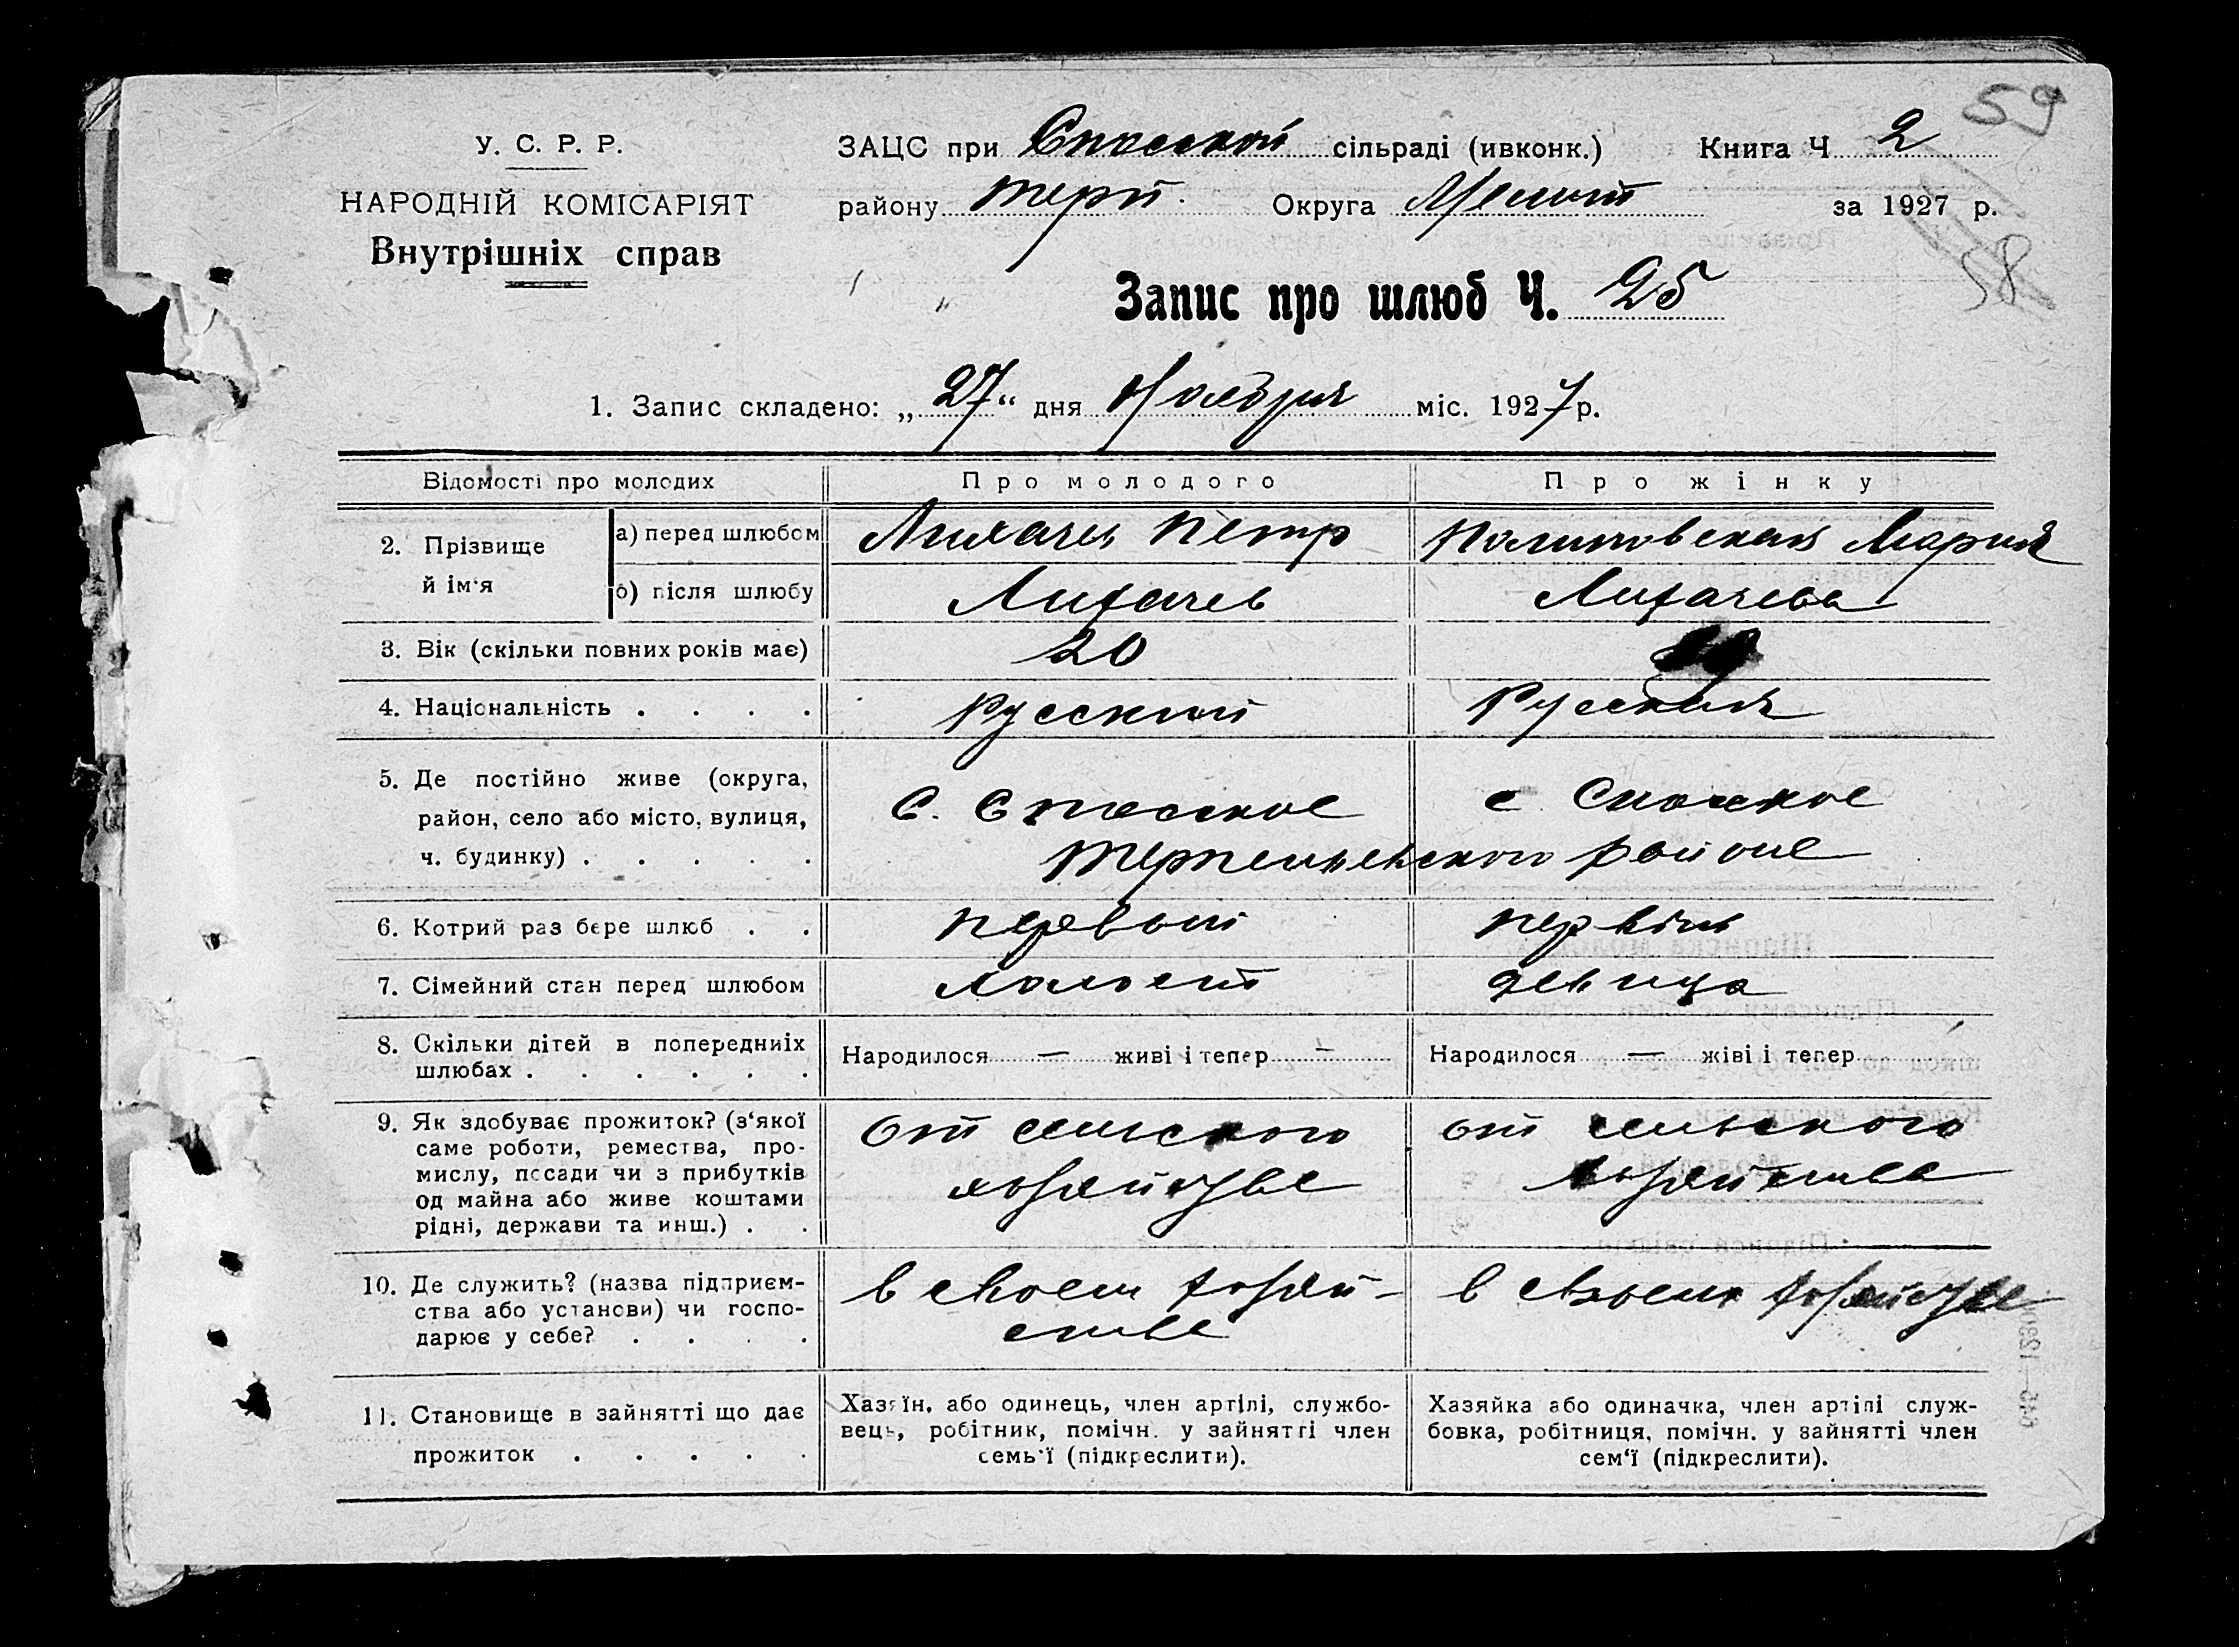 59
У. С. Р. Р.
НАРОДНІЙ КОМІСАРІЯТ
Внутрішніх справ
ЗАЦС при Спасской сільраді (ивконк.) Книга Ч 2
району Терп. Округа Мелит за 1927 р.
58
Запис про шлюб Ч. 25
1. Запис складено: „27“ дня Ноября міс. 1927 р.
Відомості про молодих Про молодого Про жінку
2. Прізвище й ім‘я
а) перед шлюбом Лихачев Петр Мария
б) після шлюбу Лихачев Лихачева
3. Вік (скільки повних років має) 20
4. Національність . . . . Русский Русская
5. Де постійно живе (округа,
район, село або місто, вулиця,
ч. будинку) . . . . .
С. Спасское с Спасское
Терпеньевского района
6. Котрий раз бере шлюб . . первый
7. Сімейний стан перед шлюбом холост девица
8. Скільки дітей в попередниіх
шлюбах . . . . . .
Народилося — живі і тепер —
Народилося — жіві і тепер
9. Як здобуває прожиток? (з‘якої
саме роботи, ремества, про-
мислу, посади чи з прибутків
од майна або живе коштами
рідні, держави та инш.) . .
от сельского
хозяйства
от сельского
хозяйства
10. Де служить? (назва підприєм-
ства або установи) чи госпо-
дарює у себе? . . . .
в своем хозяй-
стве
в своем хозяйстве
11. Становище в зайнятті що дає
прожиток . . . . .
Хазяїн, або одинець, член артілі, службо-
вець, робітник, помічн. у зайнятті член
семь‘ї (підкреслити).
Хазяйка або одиначка, член артілі служ-
бовка, робітниця, помічн. у зайнятті член
сем‘ї (підкреслити).